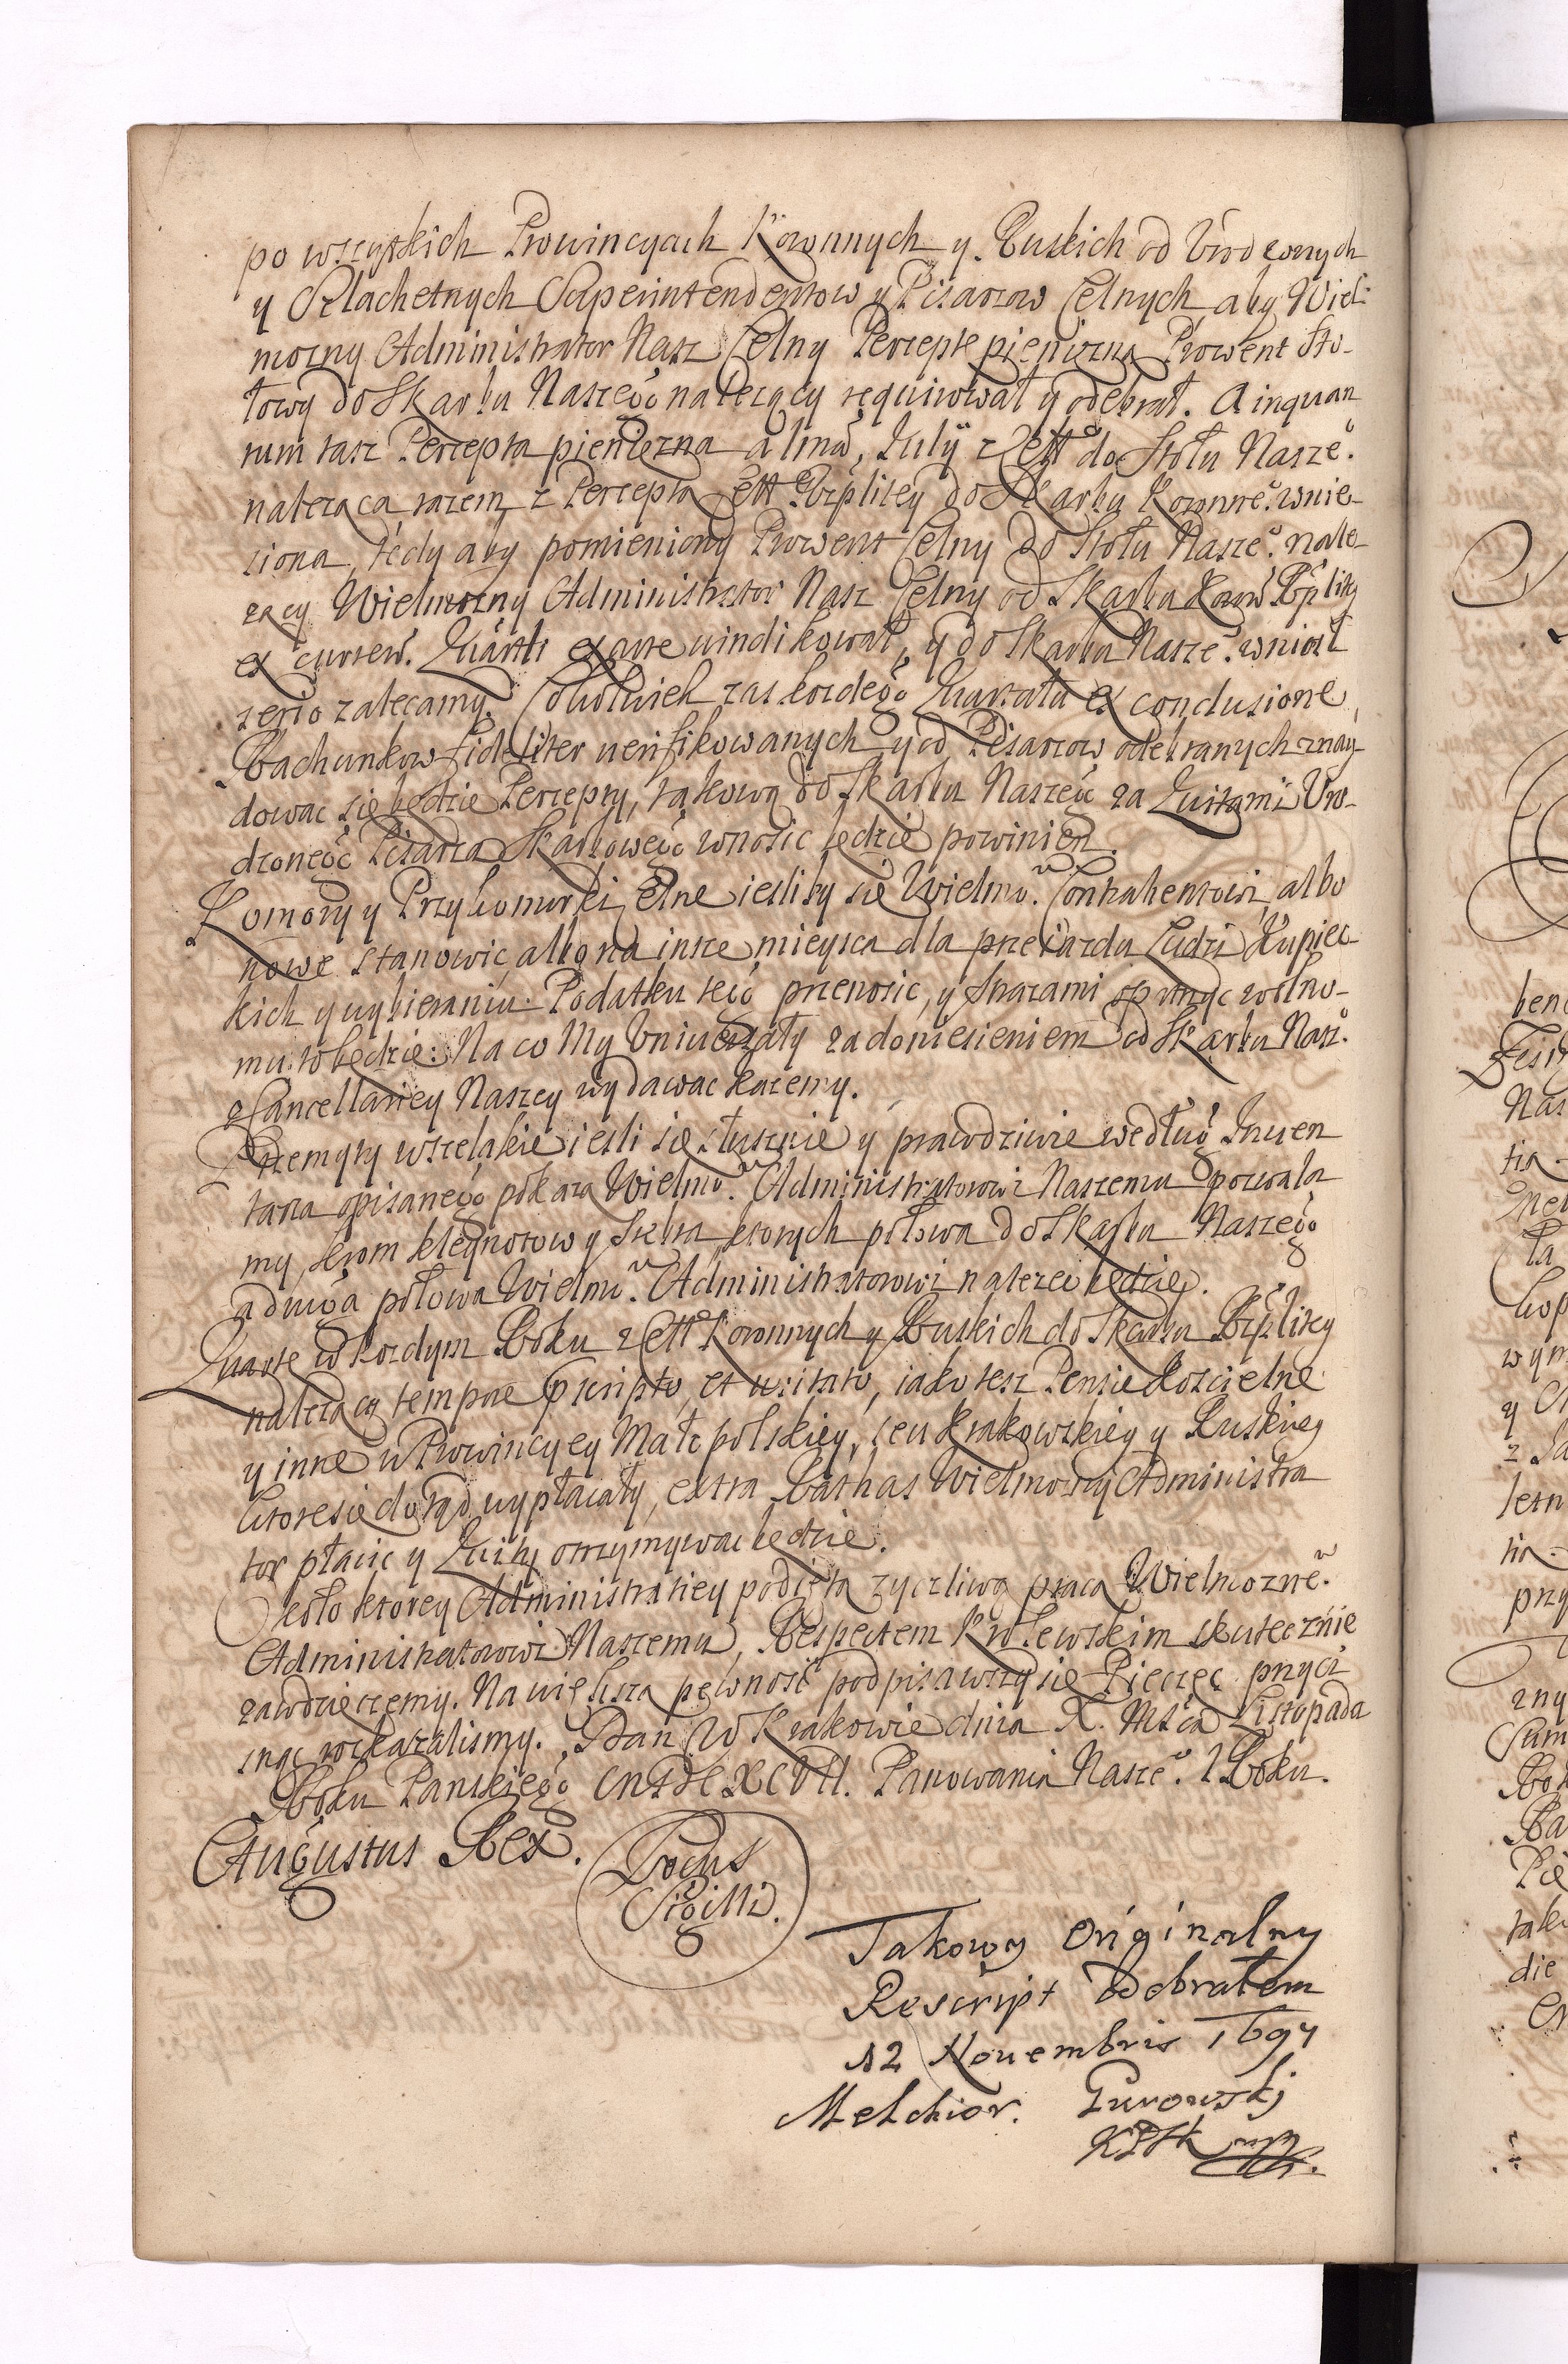 po wszytkich Prowincyach Koronnych y Ruskich od Urodzonych
y Szlachetnych Superintendentow y Pisarzow Celnych aby Wiel-
mozny Administrator Nasz Celny Percepte pieniezna Prowent Sto-
łowy do Skarbu Naszego nalezący requirował y odebrał. A inquan
tum tasz Percepta pieniezna a 1ma July z Cełł do Stołu Nasze°.
nalezaca razem z Perceptą Cełł Rzplitey do Skarbu Koronne° wnie-
siona, tedy aby pomieniony Prowent Celny do Stołu Nasze°. nale-
zący Wielmozny Administrator Nasz Celny od Skarbu Koron Rzplitey
ex curren. Quarta exacte windikował, y do Skarbu Nasze°. wniosł
serio zalecamy. Cokolwiek zas kozdego Quartału ex conclusione
Rachunkow fideliter uerifikowanych y od Pisarzow odebranych znay
dowac się będzie Percepty, takową do Skarbu Naszego za Quitami Uro-
dzonego Pisarza Skarbowego wnosic będzie powinien.
Komory y Przykomorki Celne iesliby sie Wielmo. Contrahentowi, albo
nowe stanowic albo na insze mieysca dla przeiazdu Ludzi Kupiec-
kich y wybieraniu Podatku tego przenosic, y Strazami opatrzyc wolno
mu to będzie: Na co My Uniwersały za doniesieniem od Skarbu Nasz°.
z Cancellariey Naszey wydawac kazemy.
Przemyty wszelakie iesli się słusznie y prawdziwie według Inwen
tarza opisanego pokaza Wielmo. Administratorowi Naszemu pozwala
my, krom kleynotow y Srebra, ktorych połowa do Skarbu Naszego
a druga połowa Wielmo. Administratorowi nalezec będzie.
Quartę w kozdym Roku z Cełł Koronnych y Ruskich do Skarbu Rzplitey
nalezącą tempore praescripto, et usitato, iako tesz Pensie Koscielne
y inne w Prowincyey Małopolskiey, seu Krakowskiey y Ruskiey
ktore sie dotąd wypłacały, extra Rathas Wielmozny Administra
tor płacic y Quity otrzymywac będzie.
Ktorey Administratiey podiętą zyczliwą pracą Wielmozne.
Administratorowi Naszemu, Respectem Krolewskim skutecznie
zawdzięczemy. Na więksżą pewnosć podpisawszy się Pieczęc przyci
snąc roskazalismy. Dan w Krakowie dnia X. Msca Listopada
Roku Panskiego MDCXCVII. Panowania Nasze°. I Roku.
Augustus Rex.
Locus
Sigilli.
Takowy Originalny
Rescript Odebrałem
12 Nouembris 1697
Melchior. Gurowski
KPSK mpp